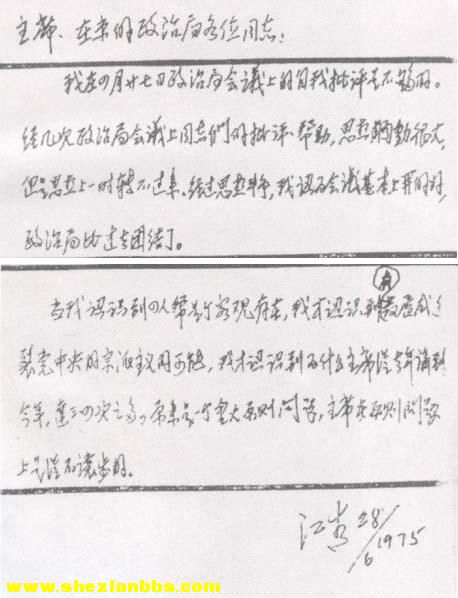 主席、在京的政治局各位同志：
我在四月廿七日政治局会议上的自我批评是不够的。
经几次政治局会议上同志們的批评、帮助，思想触动很大，
但是思想上一时转不过来。经过思想斗争，我认为会议基本上开的好，
政治局比过去团结了。
当我认识到四人帮是个客观存在，我才认识到有发展成分
裂党中央的宗派主义的可能，我才认识到为什么主席从去年讲到
今年，达三、四次之多？原来是一个重大原则问题，主席在原则问题
上是从不让步的。
江青 28/6 1975
www.shexianbbs.com